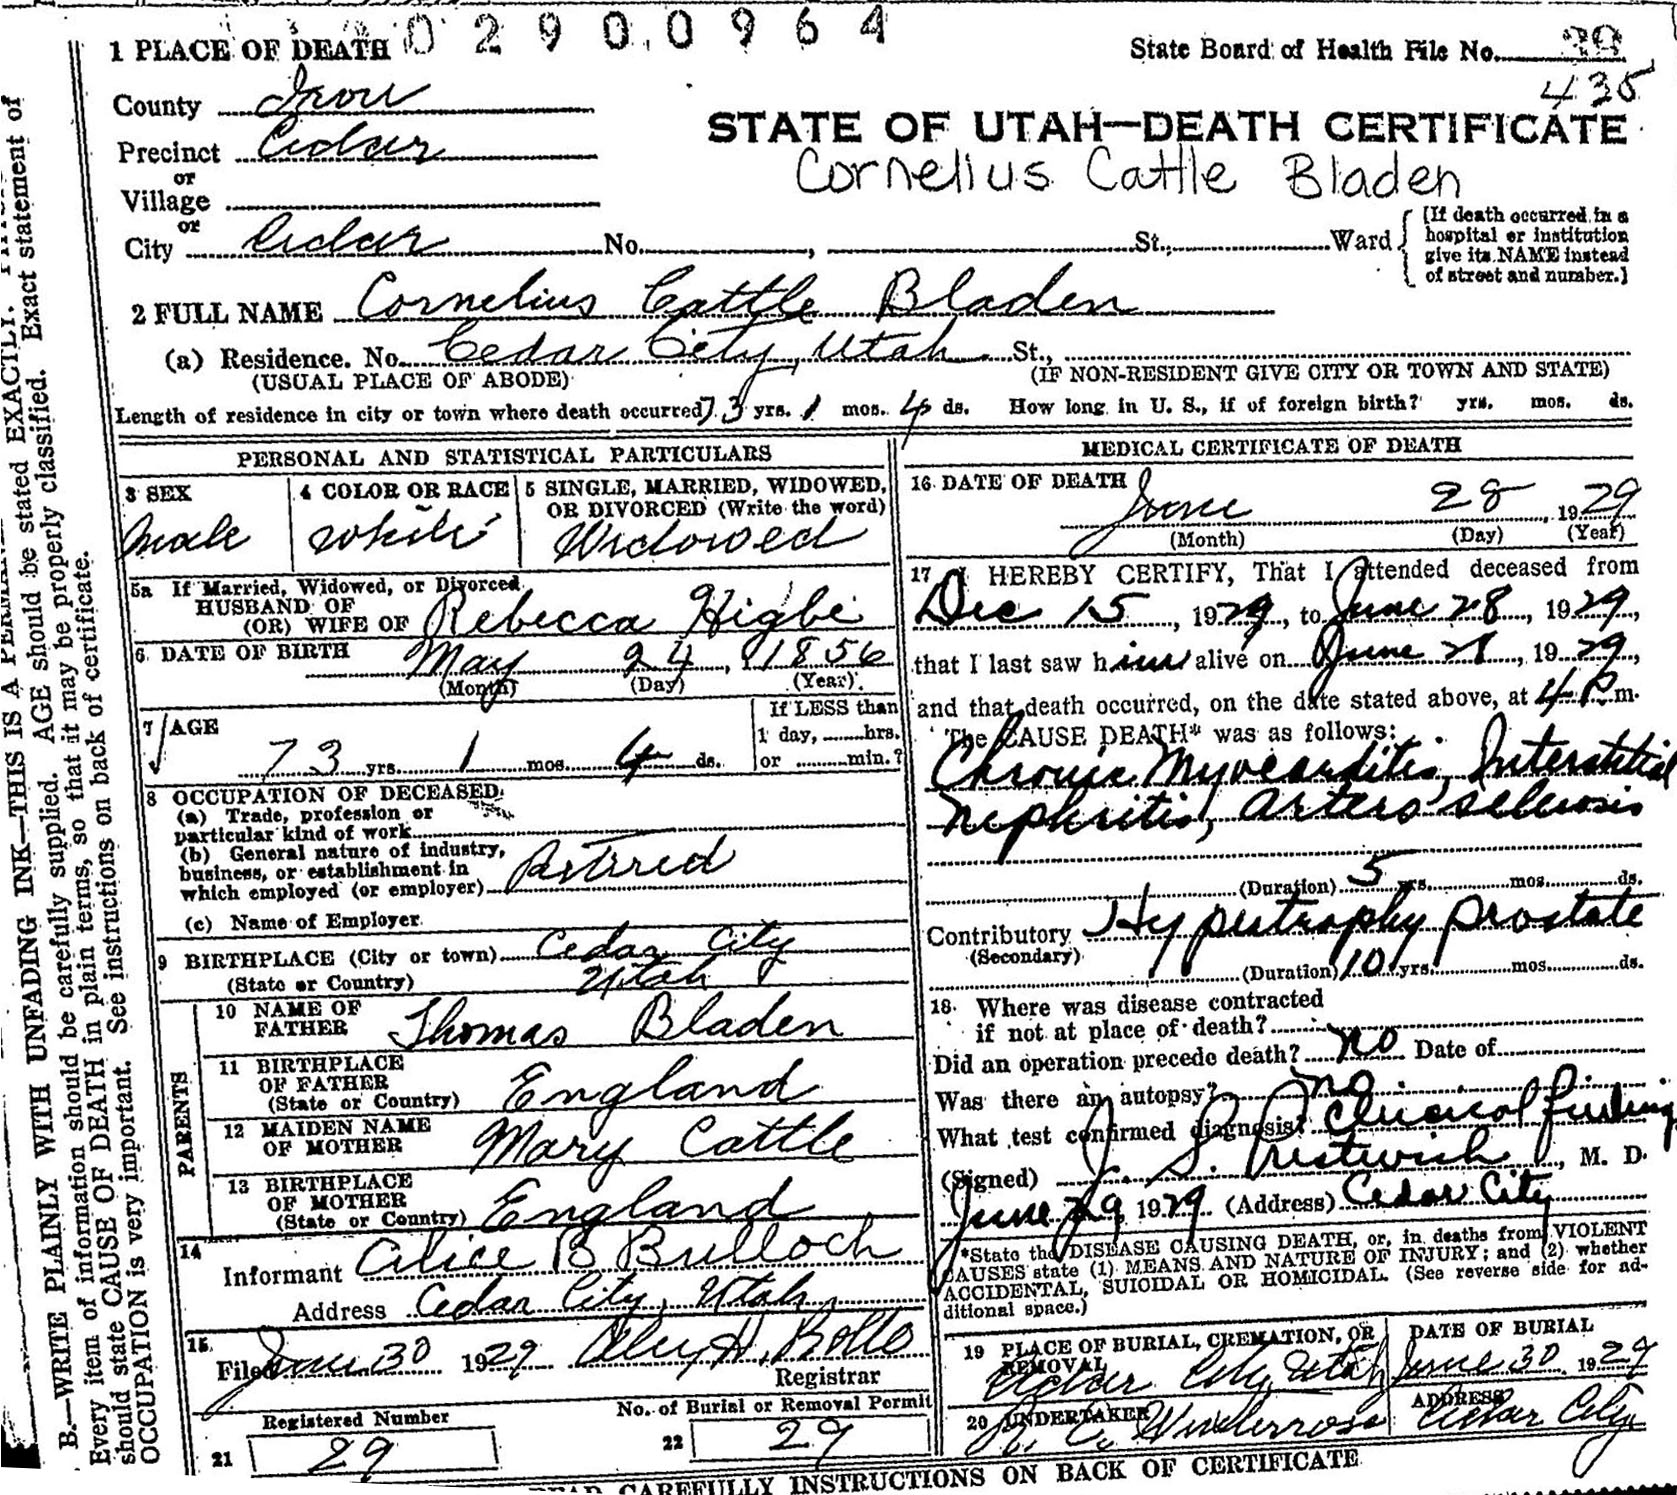 02900964
1 PLACE OF DEATH
State Board of Health File No. 39
435
County Iron
STATE OF UTAH—DEATH CERTIFICATE
Precinct Cedar
Cornelius Cattle Bladen
or
Village
or
City Cedar No. , St.; Ward
[If death occurred in a
hospital or institution
give its NAME instead
of street and number.]
2 FULL NAME Cornelius Cattle Bladen
(a) Residence. No. Cedar City, Utah St.,
(USUAL PLACE OF ABODE) (IF NON-RESIDENT GIVE CITY OR TOWN AND STATE)
Length of residence in city or town where death occurred 73 yrs. 1 mos. 4 ds. How long in U. S., if of foreign birth? yrs. mos. ds.
PERSONAL AND STATISTICAL PARTICULARS
3 SEX
male
4 COLOR OR RACE
white
5 SINGLE, MARRIED, WIDOWED,
OR DIVORCED (Write the word)
Widowed
5a If Married, Widowed, or Divorced
HUSBAND OF
(OR) WIFE OF Rebecca Higbe
6 DATE OF BIRTH May 24, 1856
(Month) (Day) (Year)
7 AGE
73 yrs 1 mos 4 ds.
If LESS than
1 day, hrs.
or min.?
8 OCCUPATION OF DECEASED
(a) Trade, profession or
particular kind of work
(b) General nature of industry,
business, or establishment in
which employed (or employer) Retired
(c) Name of Employer
9 BIRTHPLACE (City or town) Cedar City
(State or Country) Utah
PARENTS
10 NAME OF
FATHER Thomas Bladen
11 BIRTHPLACE
OF FATHER
(State or Country) England
12 MAIDEN NAME
OF MOTHER Mary Cattle
13 BIRTHPLACE
OF MOTHER
(State or Country) England
14
Informant Alice B Bulloch
Address Cedar City, Utah
15
Filed June 30 1929
Registrar
Registered Number
21 29
No. of Burial or Removal Permit
22 29
MEDICAL CERTIFICATE OF DEATH
16 DATE OF DEATH
June 28, 1929
(Month) (Day) (Year)
17 I HEREBY CERTIFY, That I attended deceased from
Dec 15, 1929, to June 28, 1929,
that I last saw him alive on June 28, 1929,
and that death occurred, on the date stated above, at 4 P.m.
The CAUSE DEATH* was as follows:
Chronic Myocarditis, Interstitial
Nephritis, Artero sclerosis
(Duration) 5 yrs. mos. ds.
Contributory Hypertrophy prostate
(Secondary)
(Duration) 10 yrs. mos. ds.
18. Where was disease contracted
if not at place of death?
Did an operation precede death? no Date of
Was there an autopsy? no
What test confirmed diagnosis? Clinical finding
(Signed) J. S. Prestwich, M. D.
June 29 1929 (Address) Cedar City
*State the DISEASE CAUSING DEATH, or, in deaths from VIOLENT
CAUSES state (1) MEANS AND NATURE OF INJURY; and (2) whether
ACCIDENTAL, SUICIDAL OR HOMICIDAL. (See reverse side for ad-
ditional space.)
19 PLACE OF BURIAL, CREMATION, OR
REMOVAL
Cedar City, Utah
DATE OF BURIAL
June 30 1929
20 UNDERTAKER
ADDRESS
Cedar City
READ CAREFULLY INSTRUCTIONS ON BACK OF CERTIFICATE
B.—WRITE PLAINLY WITH UNFADING INK—THIS IS A
Every item of information should be carefully supplied. AGE should be stated EXACTLY.
should state CAUSE OF DEATH in plain terms, so that it may be properly classified. Exact statement of
OCCUPATION is very important. See instructions on back of certificate.